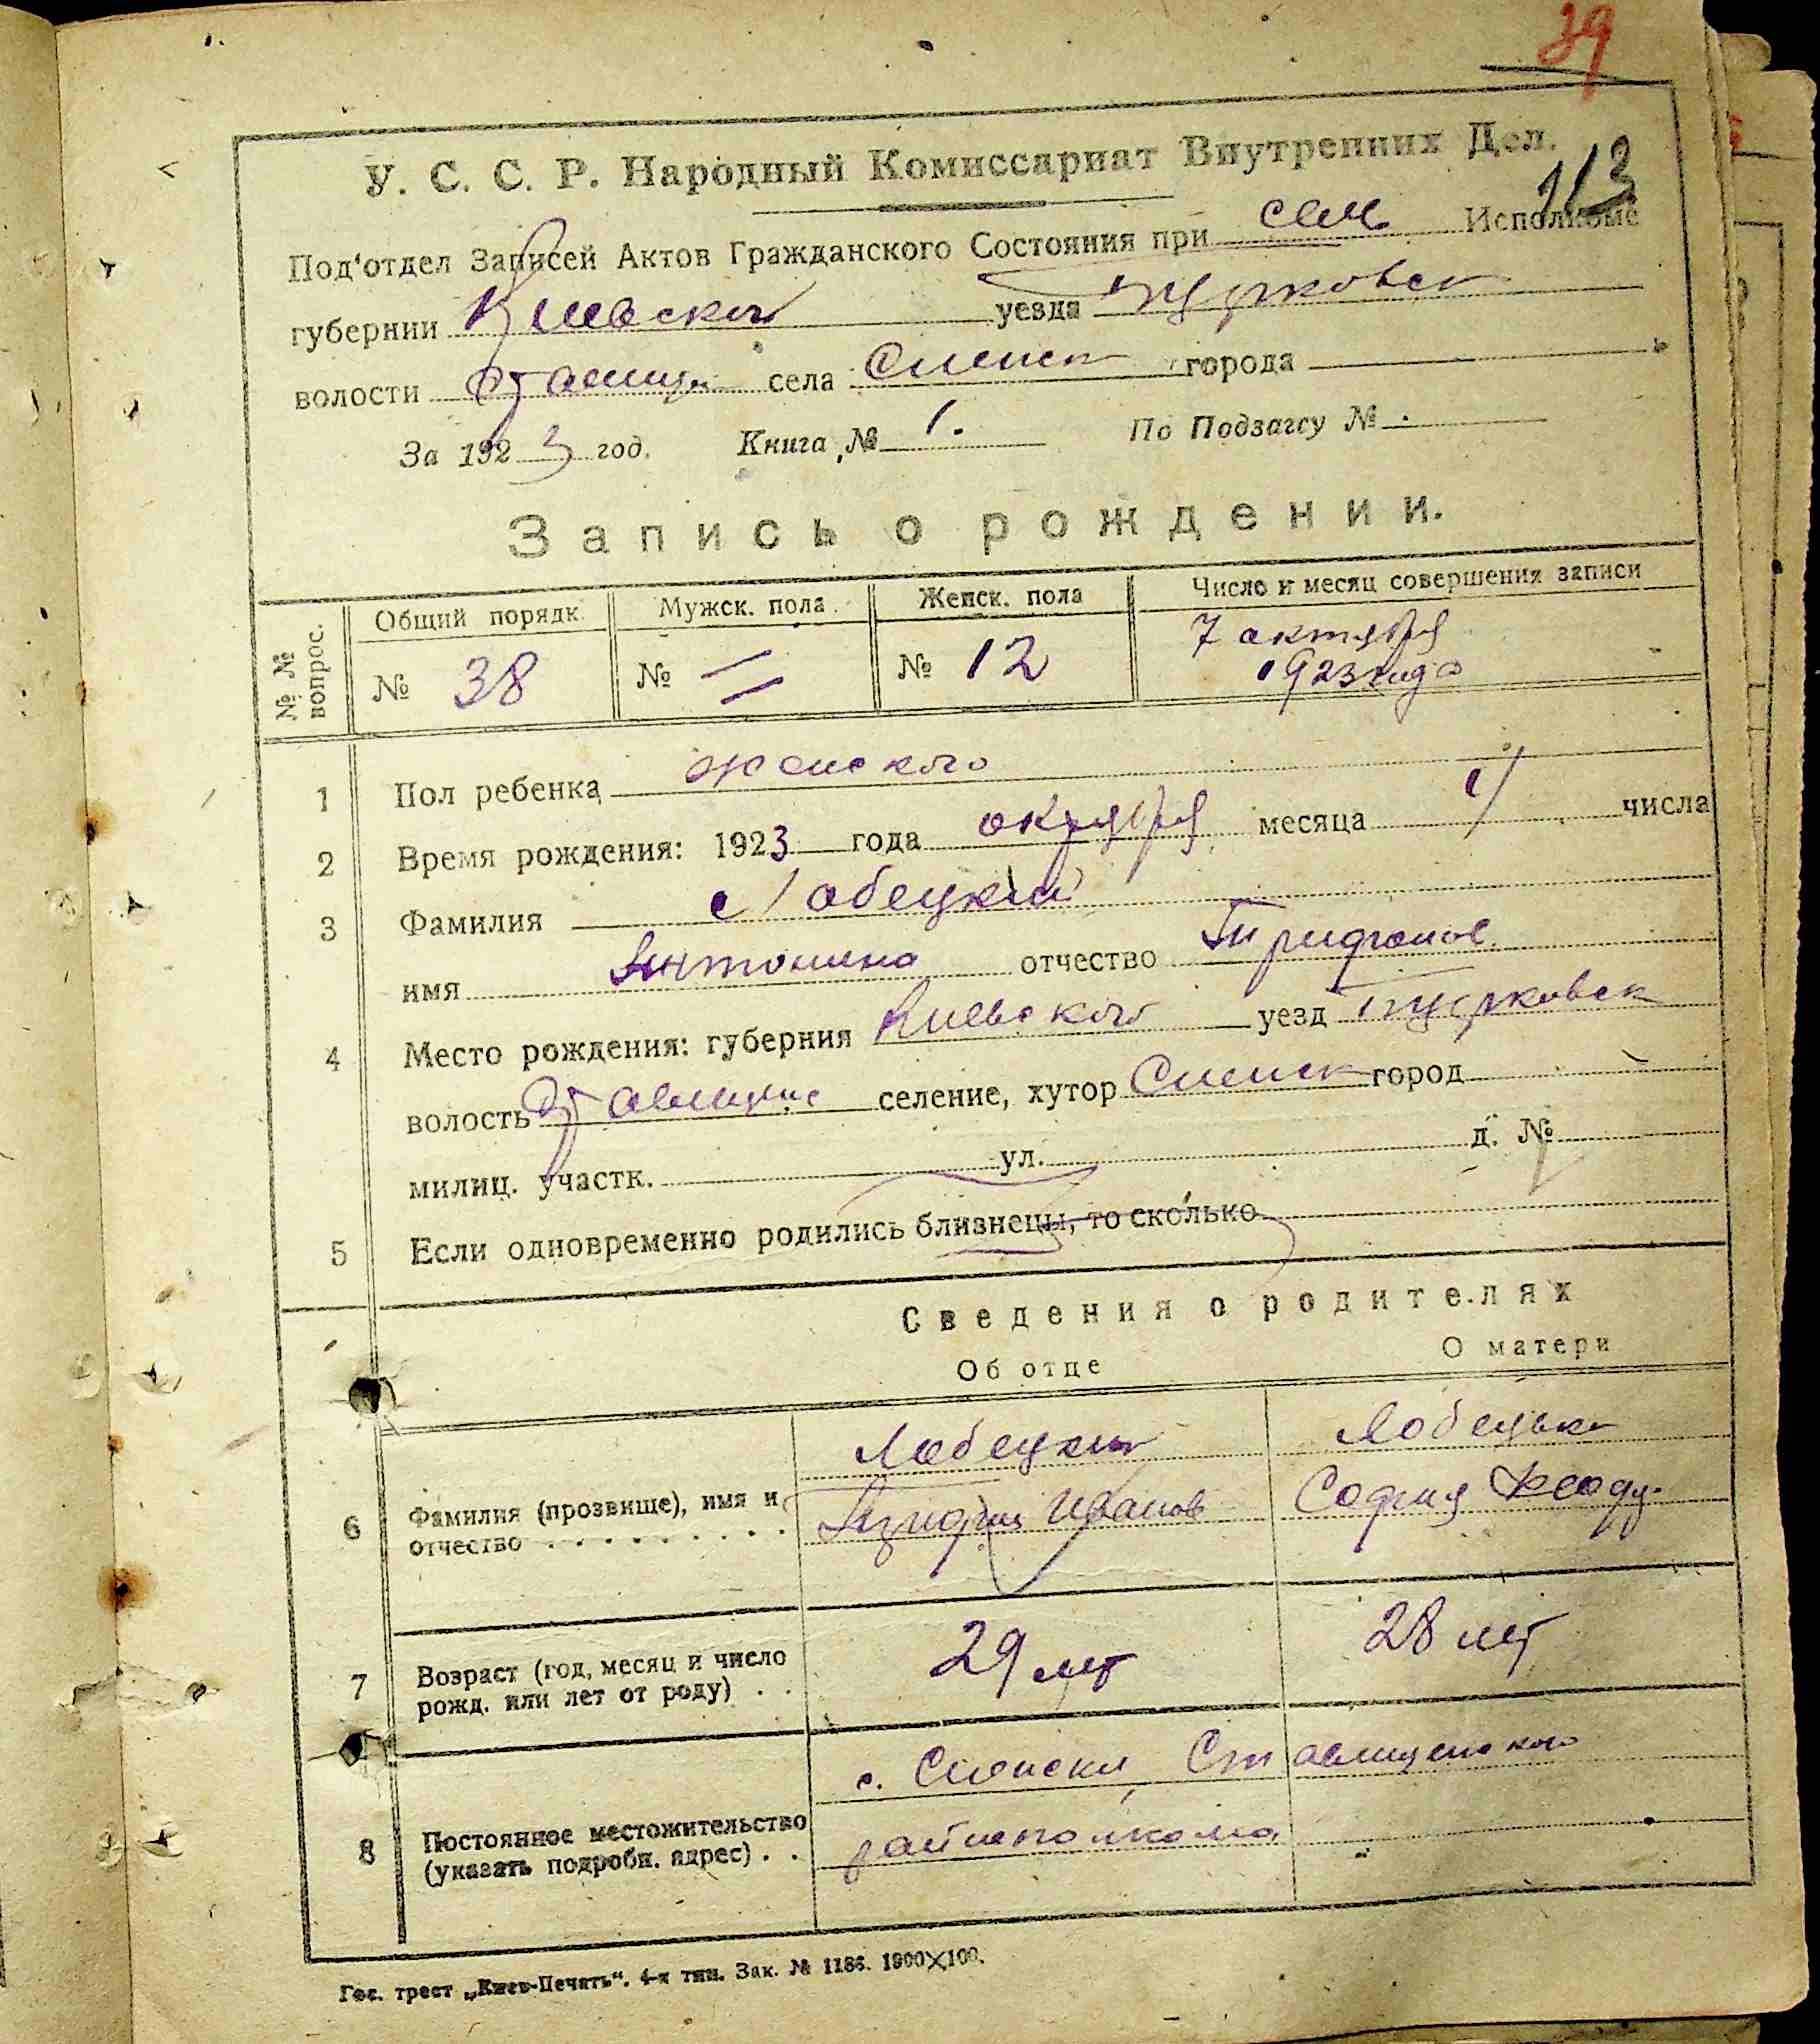 39
У. С. С. Р. Народный Комиссариат Внутренних Дел.
113
Под'отдел Записей Актов Гражданского Состояния при сель Исполкоме
губернии Киевской уезда
волости села города
За 1923 год. Книга № 1. По Подзагсу №
Запись о рождении.
№ № вопрос. Общий порядк. Мужск. пола Женск. пола Число и месяц совершения записи
№ 38 № № 12 7 октября
1923 года
1 Пол ребенка женского
2 Время рождения: 1923 года октября месяца числа
3 Фамилия Лобецкий
имя Антонина отчество Трифонов.
4 Место рождения: губерния Киевского уезд
волость селение, хутор город
милиц. участк. ул. д. №
5 Если одновременно родились близнецы, то сколько
Сведения о родителях
Об отце О матери
Лобецкий Лобецька
6 Фамилия (прозвище), имя и отчество Трифон Иванов София Феод.
7 Возраст (год, месяц и число рожд. или лет от роду) 29 лет 28 лет
с. Ставищенского
8 Постоянное местожительство (указать подробн. адрес) райисполкома
Гос. трест „Киев-Печать“. 4-я тип. Зак. № 1186. 1900×100.